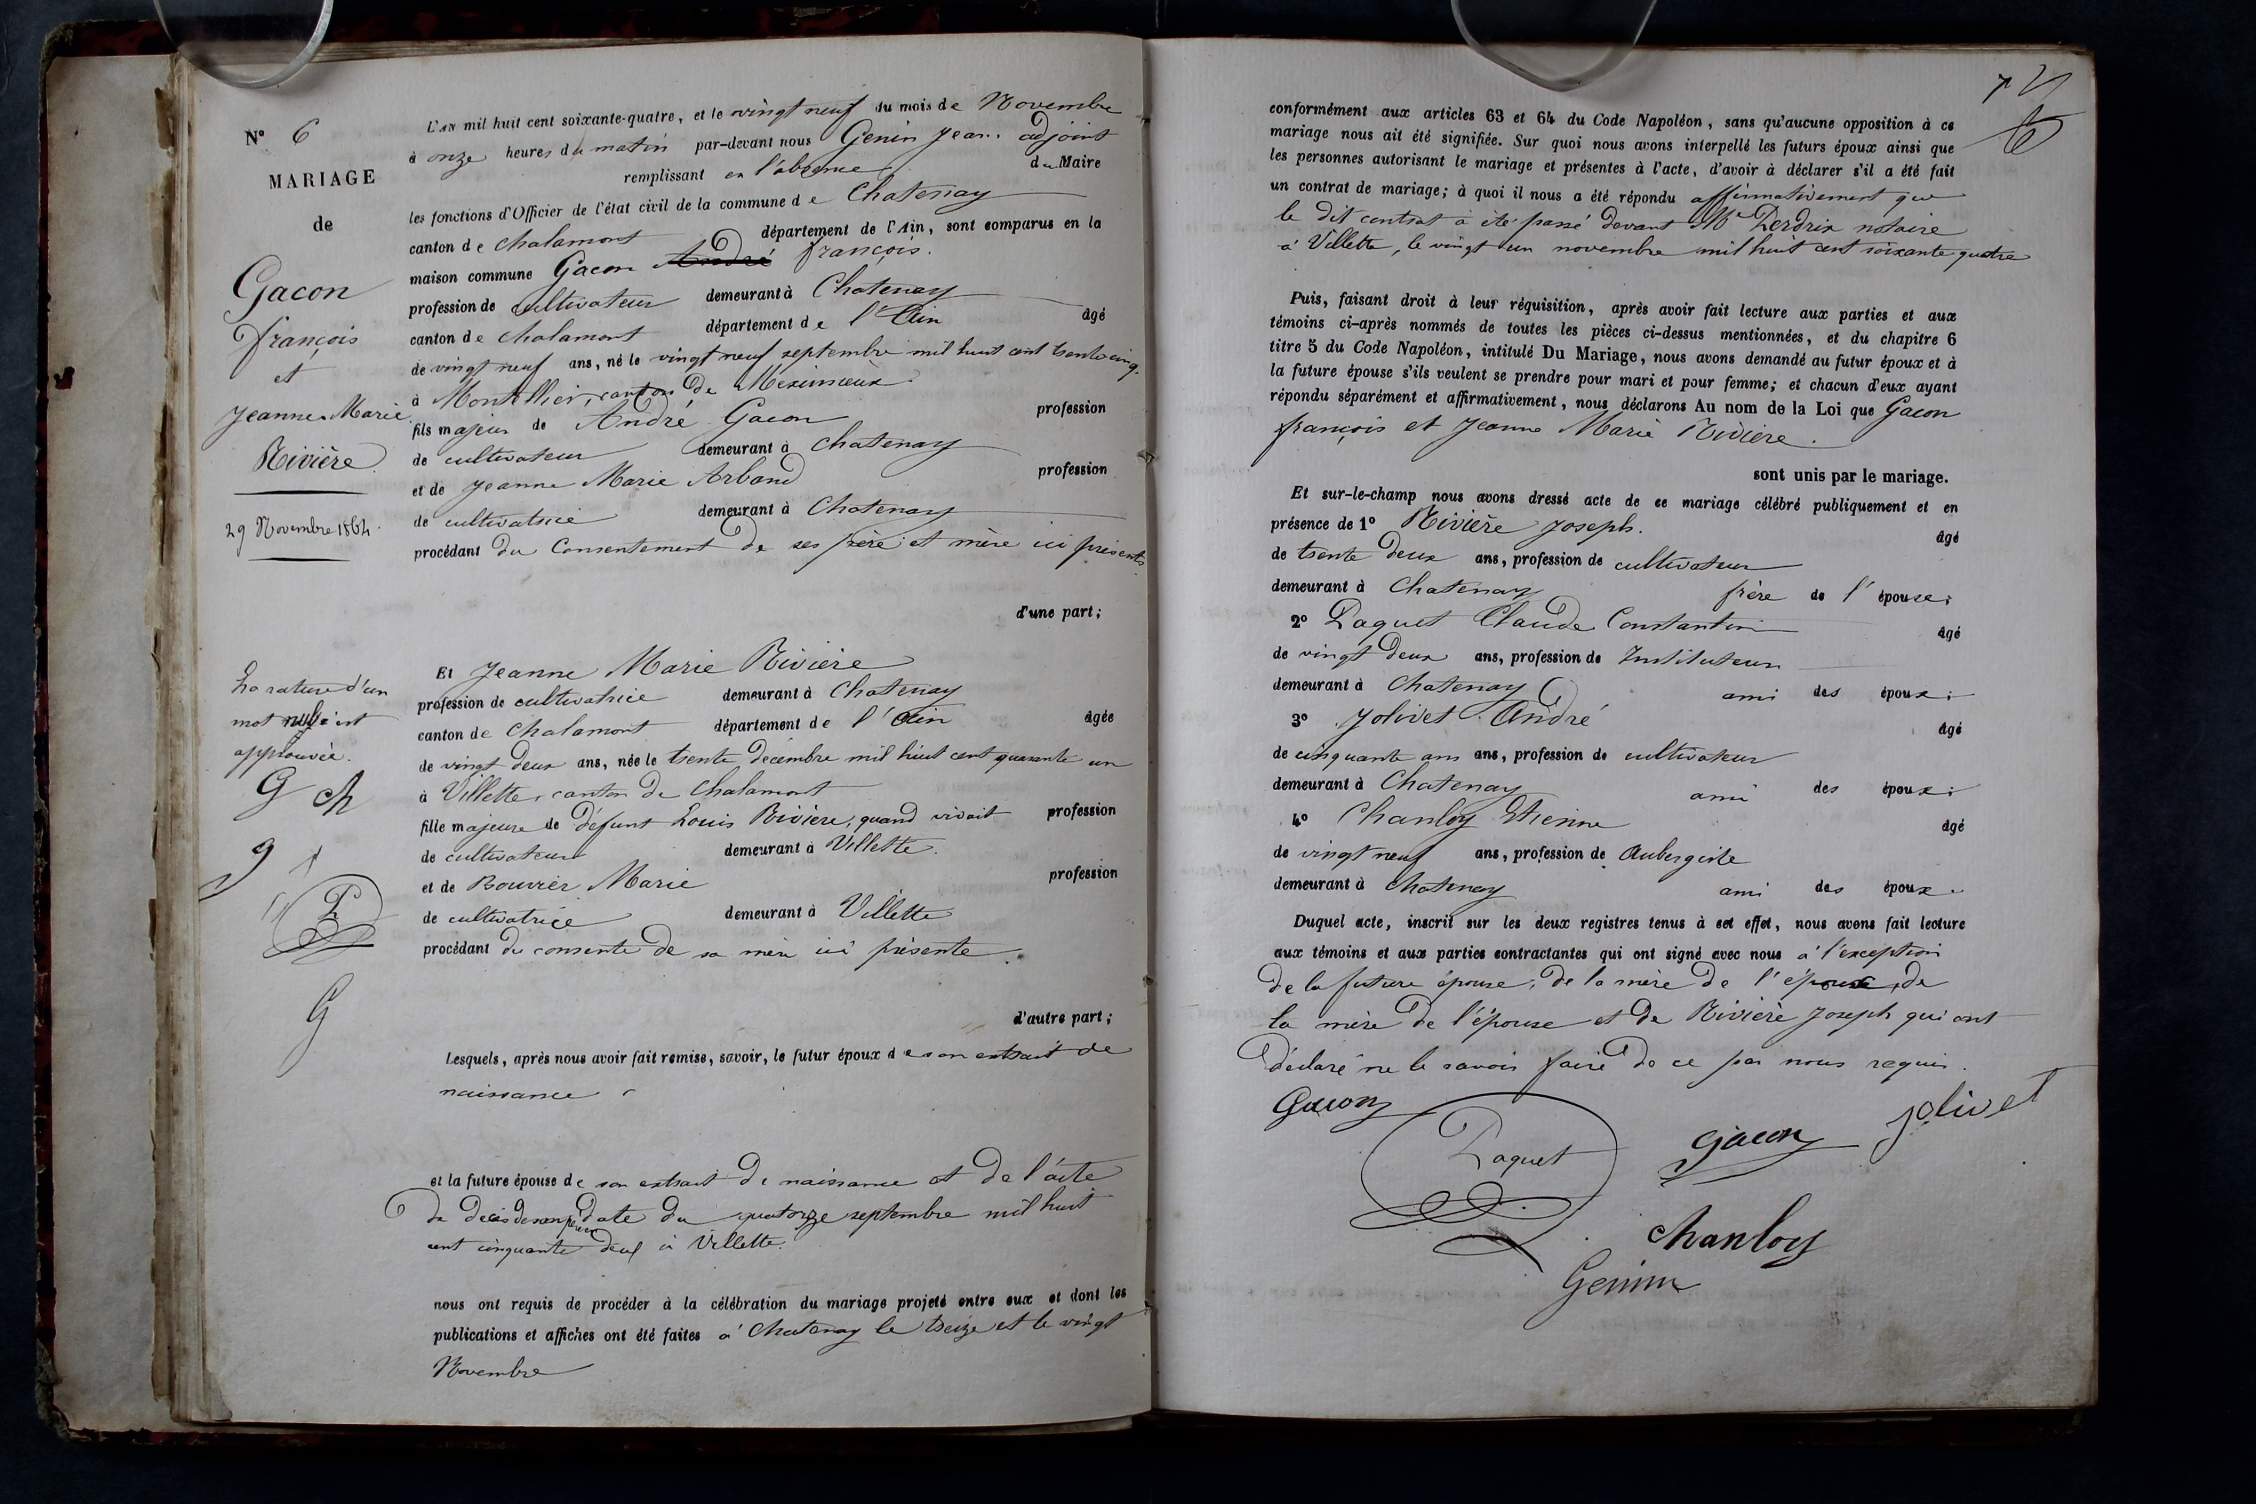 N° 6
MARIAGE
de
Gacon
françois
et
Jeanne Marie
Rivière
29 Novembre 1864.
L'AN mil huit cent soixante-quatre, et le vingt neuf du mois de Novembre
à onze heures du matin par-devant nous Genin Jean. adjoint
remplissant en l'absence du Maire
les fonctions d'Officier de l'état civil de la commune de Chatenay
canton de Chalamont département de l'Ain, sont comparus en la
maison commune Gacon André françois.
profession de cultivateur demeurant à Chatenay
canton de Chalamont département de l'Ain âgé
de vingt neuf ans, né le vingt neuf septembre mil huit cent trente cinq.
à Montellier, canton de Meximieux.
fils majeur de André Gacon profession
de cultivateur demeurant à Chatenay
et de Jeanne Marie Arband profession
de cultivatrice demeurant à Chatenay
procédant du Consentement de ses père et mère ici présents.
d'une part;
La rature d'un
mot nul est
approuvée.
G Ch
g J
P
G
Et Jeanne Marie Rivière
profession de cultivatrice demeurant à Chatenay
canton de Chalamont département de l'Ain âgée
de vingt deux ans, née le trente décembre mil huit cent quarante un
à Villette, canton de Chalamont
fille majeure de défunt Louis Rivière, quand vivait profession
de cultivateur demeurant à Villette.
et de Bouvier Marie profession
de cultivatrice demeurant à Villette
procédant du consente de sa mère ici présente.
d'autre part;
Lesquels, après nous avoir fait remise, savoir, le futur époux de son extrait de
naissance
et la future épouse de son extrait de naissance et de l'acte
de décès de son père en date du quatorze septembre mil huit
cent cinquante deux à Villette.
nous ont requis de procéder à la célébration du mariage projeté entre eux et dont les
publications et affiches ont été faites à Chatenay le treize et le vingt
Novembre
conformément aux articles 63 et 64 du Code Napoléon, sans qu'aucune opposition à ce
mariage nous ait été signifiée. Sur quoi nous avons interpellé les futurs époux ainsi que
les personnes autorisant le mariage et présentes à l'acte, d'avoir à déclarer s'il a été fait
un contrat de mariage; à quoi il nous a été répondu affirmativement que
le dit contrat a été passé devant Me Perdrix notaire
à Villette, le vingt un novembre mil huit cent soixante quatre
Puis, faisant droit à leur réquisition, après avoir fait lecture aux parties et aux
témoins ci-après nommés de toutes les pièces ci-dessus mentionnées, et du chapitre 6
titre 5 du Code Napoléon, intitulé Du Mariage, nous avons demandé au futur époux et à
la future épouse s'ils veulent se prendre pour mari et pour femme; et chacun d'eux ayant
répondu séparément et affirmativement, nous déclarons Au nom de la Loi que Gacon
françois et Jeanne Marie Rivière.
sont unis par le mariage.
Et sur-le-champ nous avons dressé acte de ce mariage célébré publiquement et en
présence de 1° Rivière Joseph. âgé
de trente deux ans, profession de cultivateur
demeurant à Chatenay frère de l'épouse;
2° Paquet Claude Constantin âgé
de vingt deux ans, profession de Instituteur
demeurant à Chatenay ami des époux;
3° Jolivet André âgé
de cinquante ans ans, profession de cultivateur
demeurant à Chatenay ami des époux;
4° Chanloy Etienne âgé
de vingt neuf ans, profession de Aubergiste
demeurant à Chatenay ami des époux.
Duquel acte, inscrit sur les deux registres tenus à cet effet, nous avons fait lecture
aux témoins et aux parties contractantes qui ont signé avec nous à l'exception
de la future épouse, de la mère de l'époux, de
la mère de l'épouse et de Rivière Joseph qui ont
déclaré ne le savoir faire de ce par nous requis.
Gacon
Paquet
Gacon
Jolivet
Chanloy
Genin